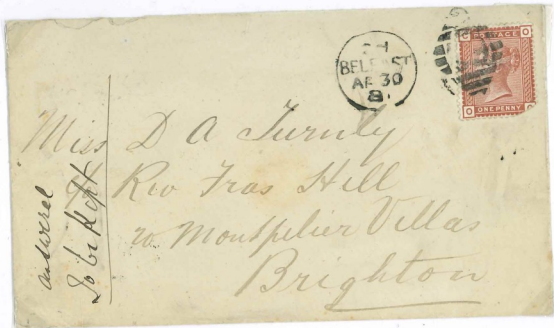 BELFAST
AP 30
8
POSTAGE
ONE PENNY
Miss D A Turnly
Rev Fras Hill
20 Montpelier Villas
Brighton
answered
To be Kept